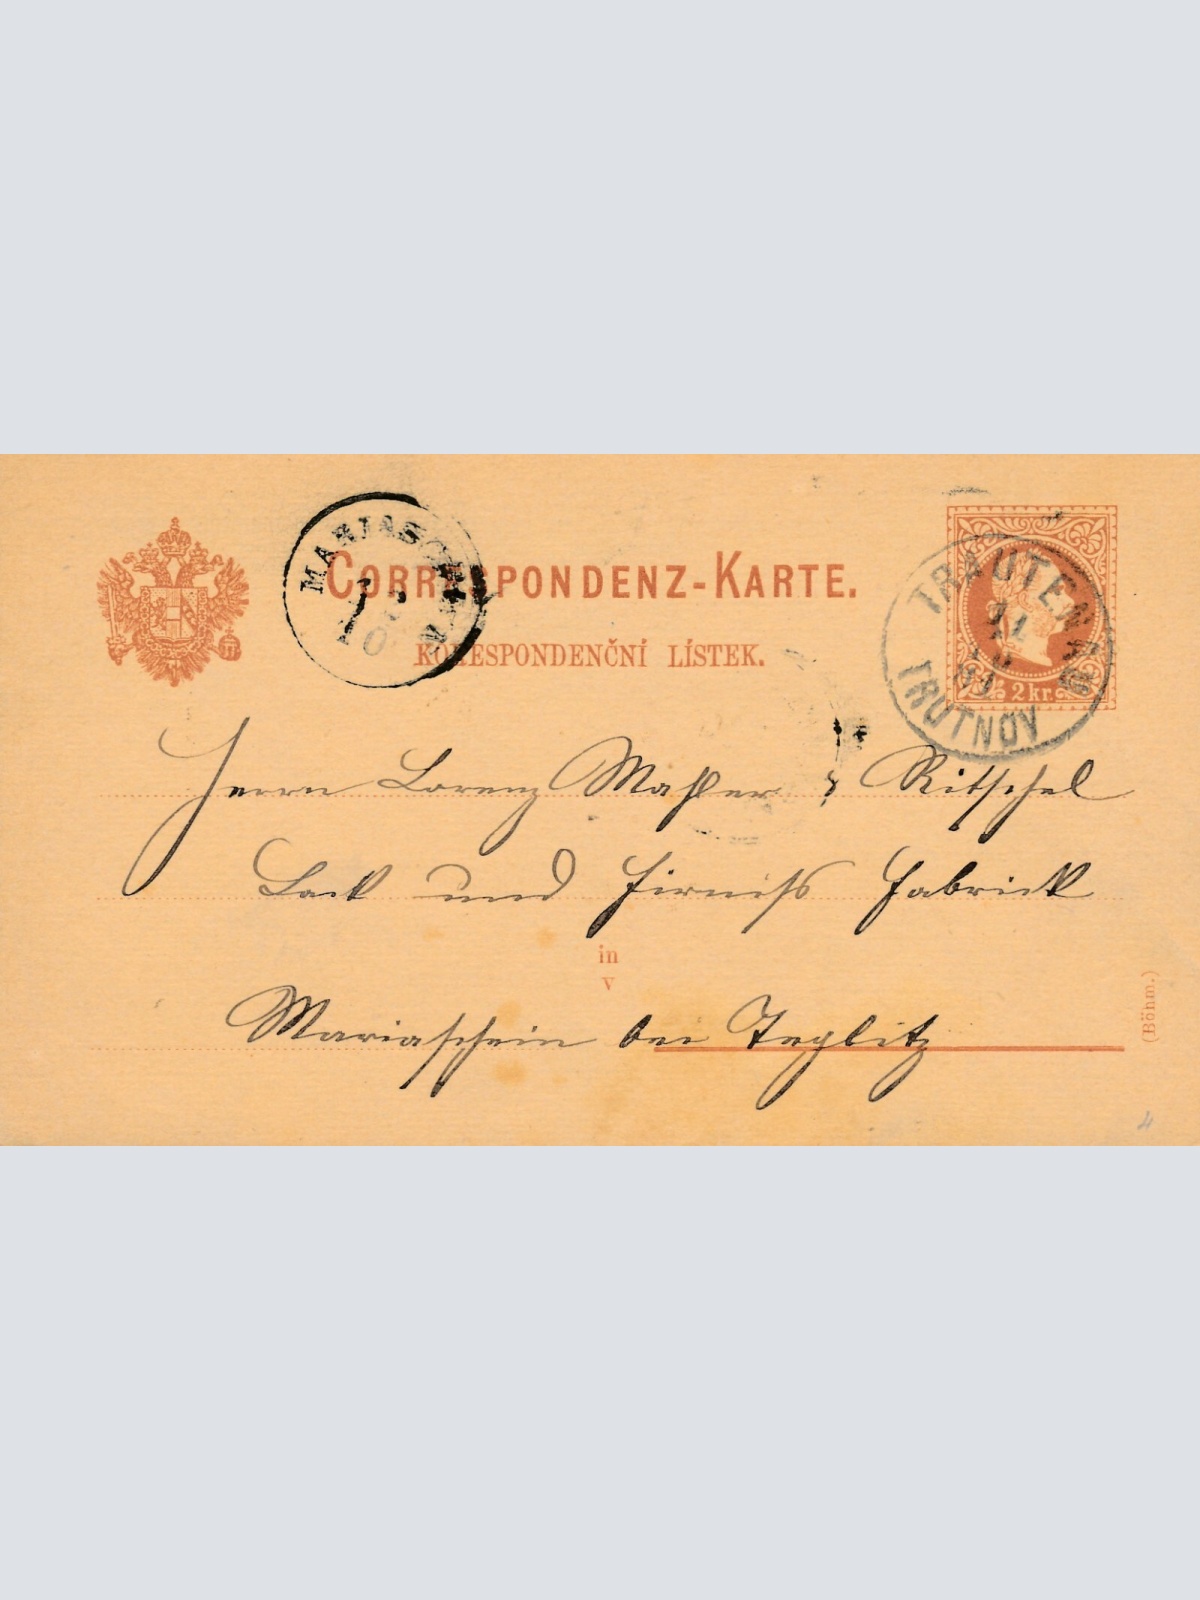 CORRESPONDENZ-KARTE.
KORESPONDENČNÍ LÍSTEK.
MARIASCHEIN
TRAUTENAU
TRUTNOV
2 kr.
Herrn Lorenz Mahler & Ritschel
Lack und Firniss Fabrick
in
v
Mariaschein bei Teplitz
(Böhm.)
4